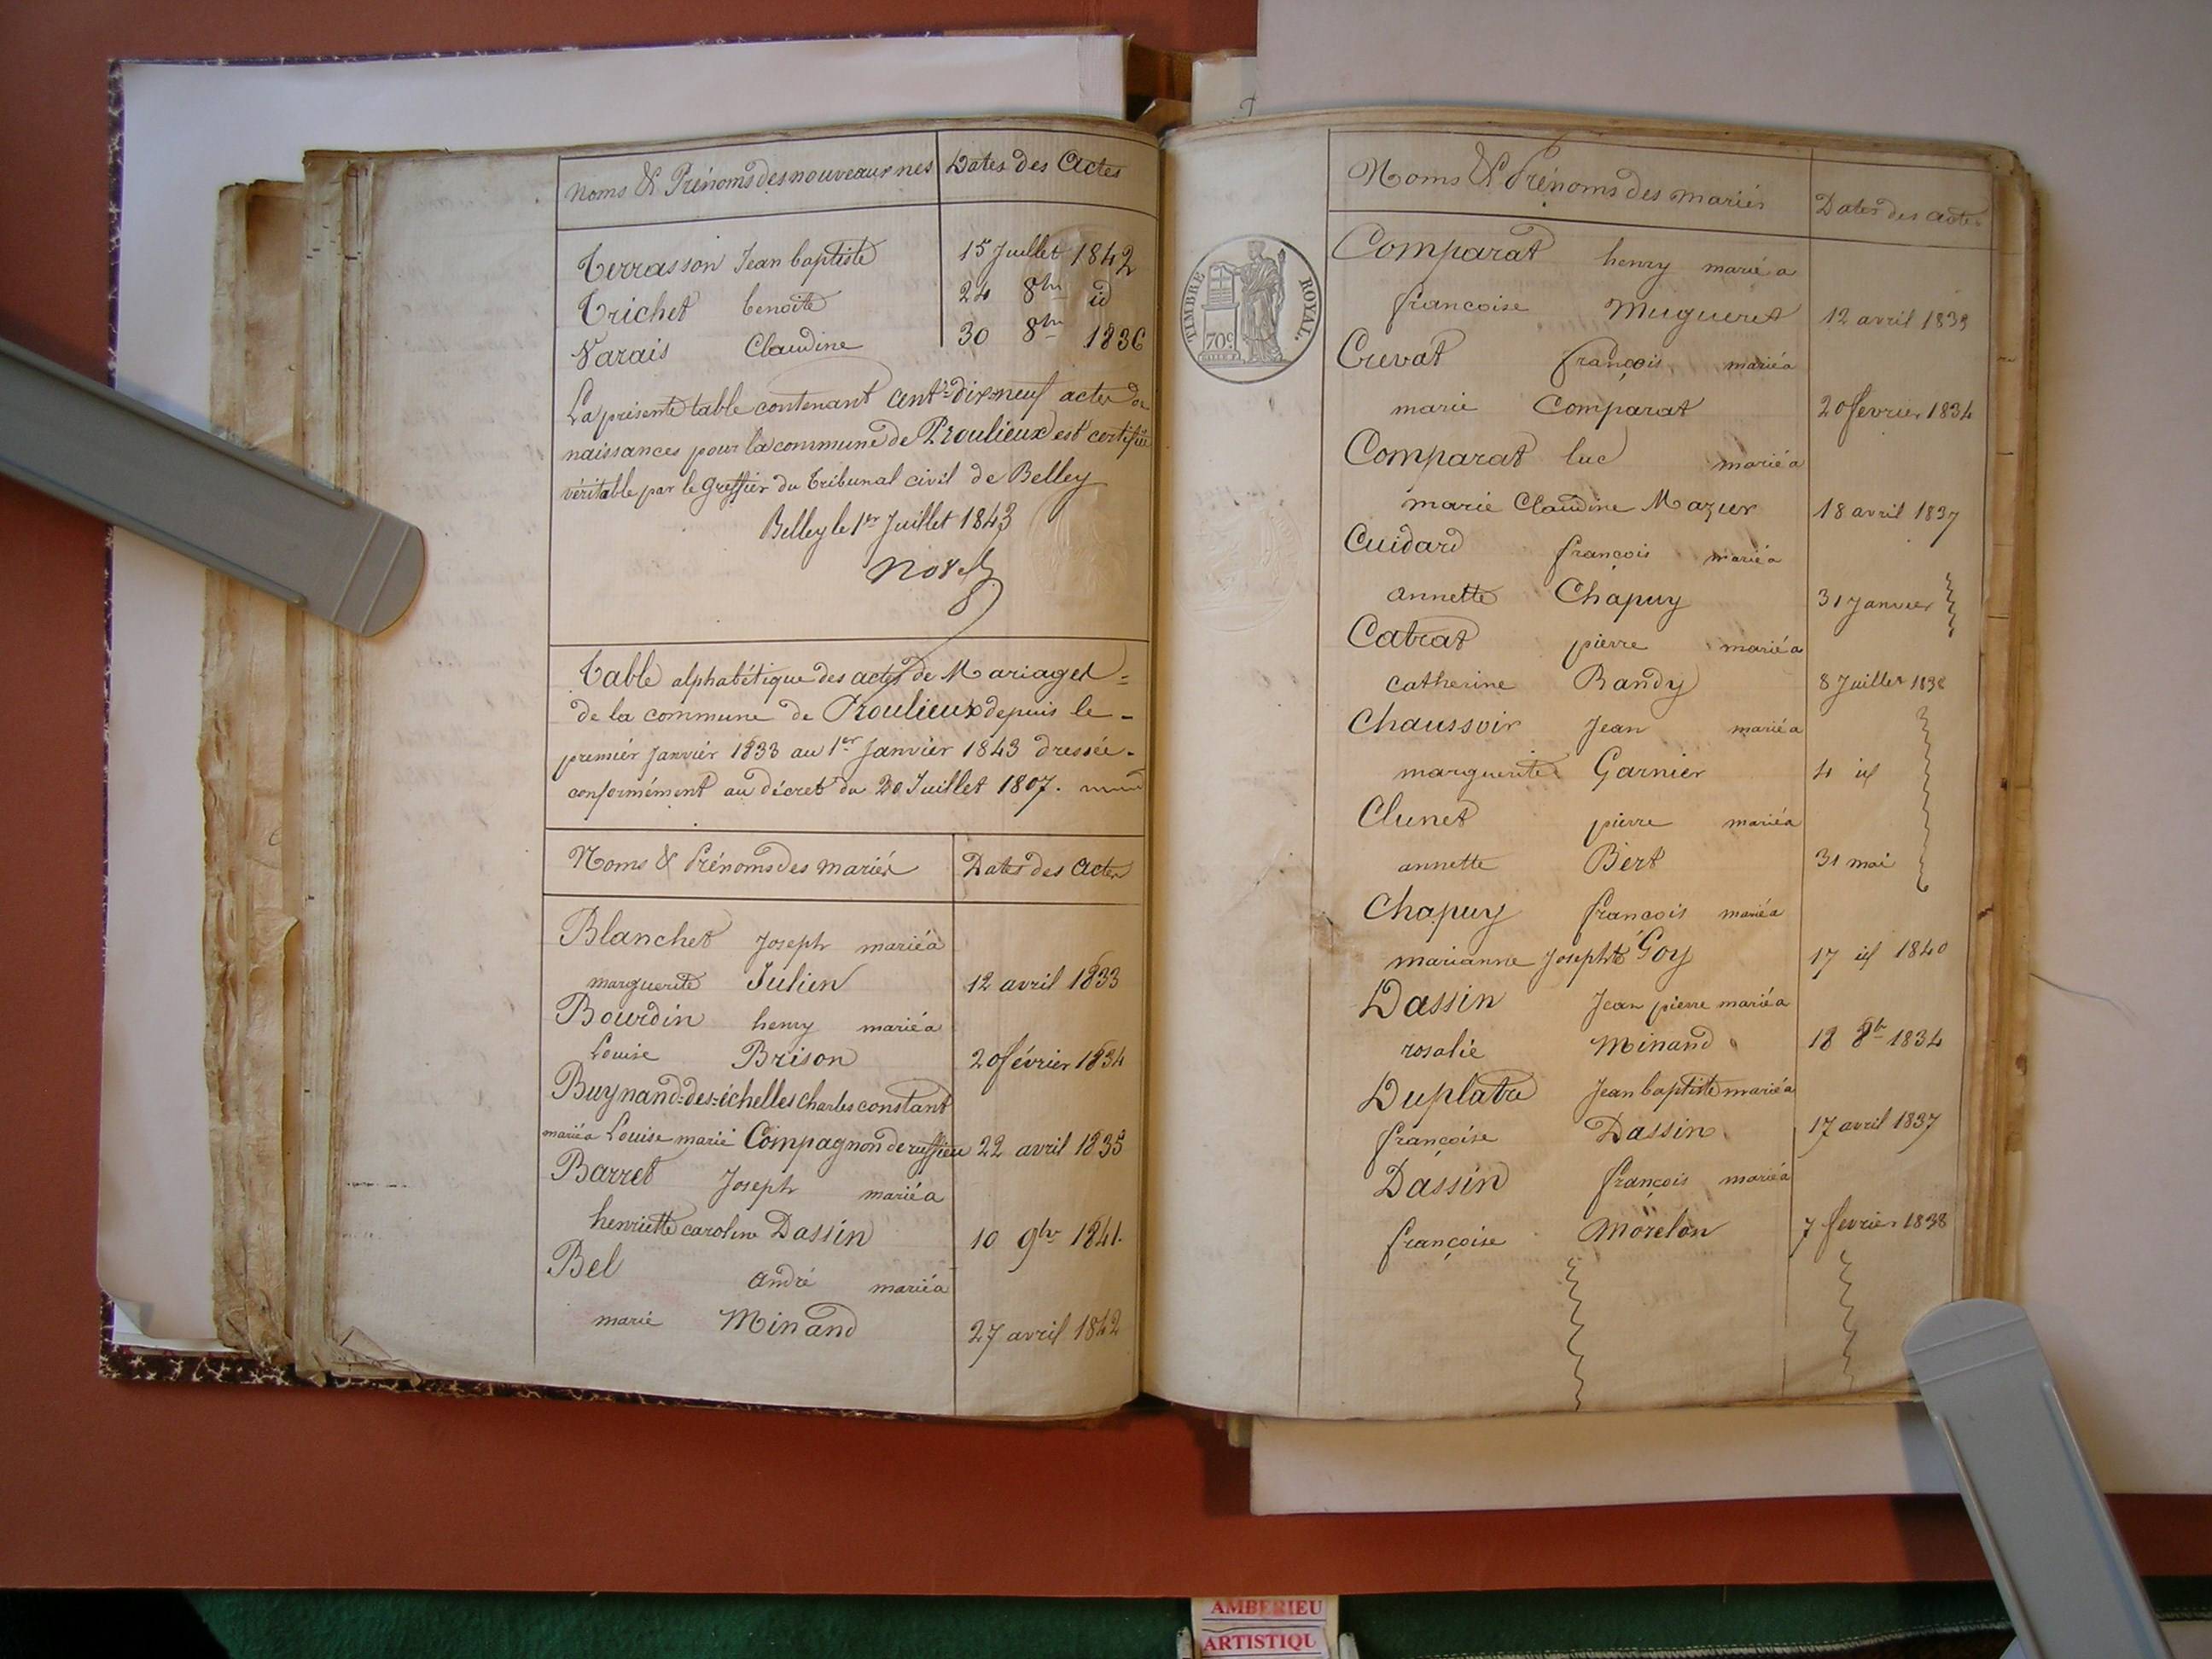 Noms & Prénoms des nouveaux nes Dates des Actes
Terrasson Jean baptiste 15 Juillet 1842
Trichet benoîte 24 8bre id
Varais Claudine 30 8bre 1836
La présente table contenant cent-dix-neuf actes de
naissances pour la commune de Proulieux est certifiée
véritable par le Greffier du Tribunal civil de Belley
Belley le 1er Juillet 1843
Table alphabétique des actes de Mariages =
de la commune de Proulieux depuis le -
premier Janvier 1833 au 1er Janvier 1843 dressée -
conformément au décret du 20 Juillet 1807.
Noms & Prénoms des mariés Dates des Actes
Blanchet Joseph marié a
marguerite Julien 12 avril 1833
Bourdin henry marié a
Louise Brison 20 février 1834
Buynand-des-échelles charles constant
marié a Louise marie Compagnon de ruffieu 22 avril 1835
Barret Joseph marié a
henriette caroline Dassin 10 9bre 1841.
Bel andré marié a
marie Minand 27 avril 1842
Noms & Prénoms des mariés Dates des actes
TIMBRE ROYAL.
70c.
Comparat henry marié a
francoise Mugueret 12 avril 1833
Crevat françois marié a
marie Comparat 20 fevrier 1834
Comparat luc marié a
marie Claudine Mazuer 18 avril 1837
Cuidard françois marié a
annette Chapuy 31 Janvier
Catrat pierre marié a
catherine Randy 8 Juillet 1838
Chaussoir Jean marié a
marguerite Garnier 4 id
Clunet pierre marié a
annette Bert 31 mai
Chapuy francois marié a
marianne Josephte Goy 17 id 1840
Dassin Jean pierre marié a
rosalie Minand 18 8bre 1834
Duplatre Jean baptiste marié a
françoise Dassin 17 avril 1837
Dassin françois marié a
françoise Morelon 7 fevrier 1838
AMBERIEU
ARTISTIQU